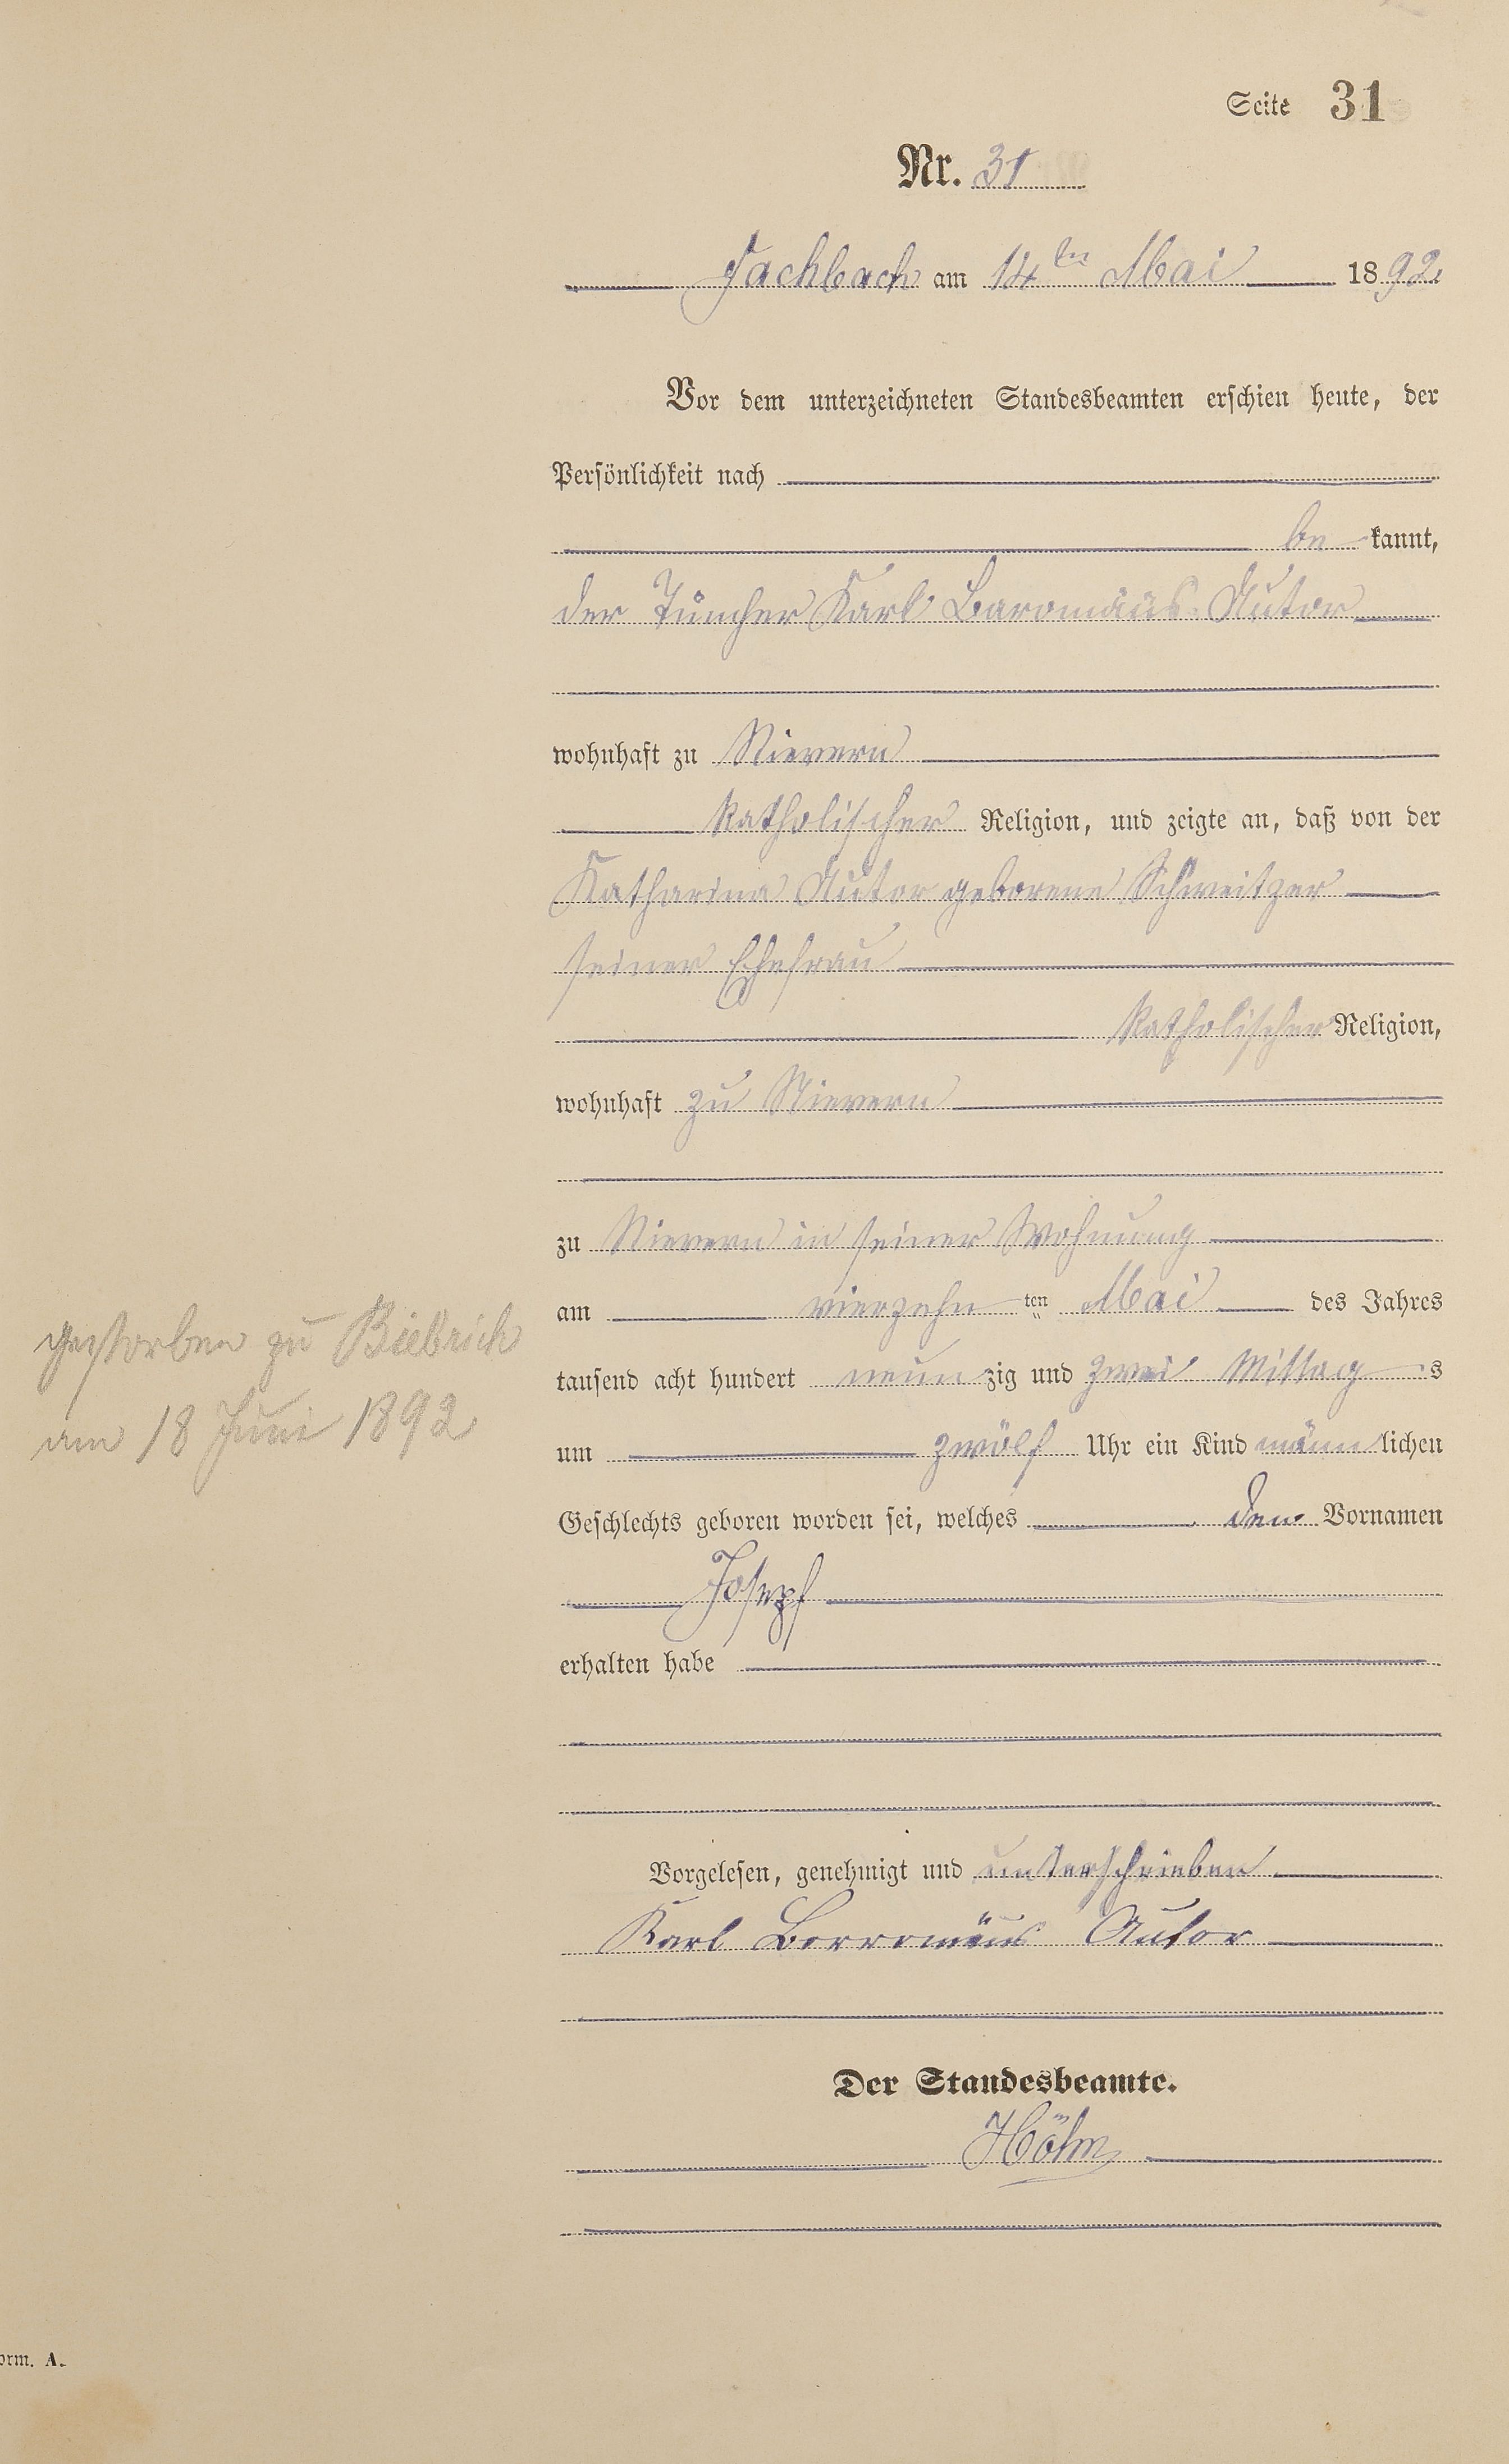 Seite 31
Nr. 31
Fachbach am 14ten Mai 1892
Vor dem unterzeichneten Standesbeamten erschien heute, der
Persönlichkeit nach
be kannt,
der Tüncher Karl Baromäus Autor
wohnhaft zu Nievern
katholischer Religion, und zeigte an, daß von der
Katharina Autor geborene Schweitzer
seiner Ehefrau
katholischer Religion,
wohnhaft zu Nievern
zu Nievern in seiner Wohnung
am vierzehn ten Mai des Jahres
tausend acht hundert neun zig und zwei Mittag s
um zwölf Uhr ein Kind männ lichen
Geschlechts geboren worden sei, welches den Vornamen
Josepf
erhalten habe
gestorben zu Biebrich
am 18 Juni 1892
Vorgelesen, genehmigt und unterschrieben
Karl Borromäus Autor
Der Standesbeamte.
Höhn
orm. A.